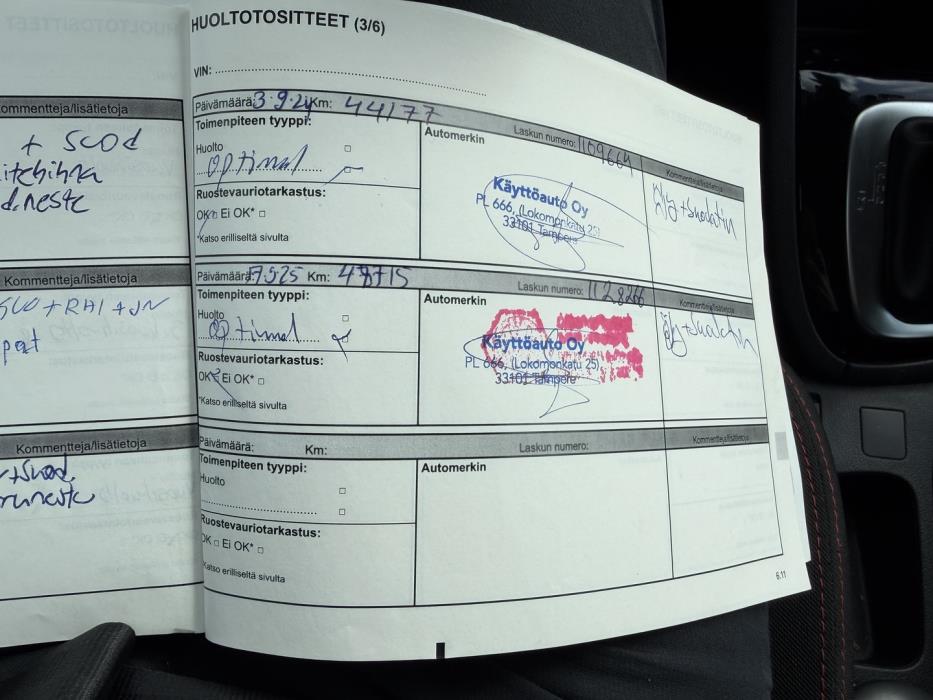 Kommentteja/lisätietoja
+ Scod
d.neste
Kommentteja/lisätietoja
Kommentteja/lisätietoja
HUOLTOTOSITTEET (3/6)
VIN:
Päivämäärä: 3.9.24 Km: 44177 Laskun numero: 1109664 Kommentteja/lisätietoja
Toimenpiteen tyyppi:
Huolto □
Optimal
Ruostevauriotarkastus:
OK □ Ei OK* □
*Katso erilliseltä sivulta
Automerkin
Käyttöauto Oy
PL 666, (Lokomonkatu 25)
33101 Tampere
Öljy + Suodatin
Päivämäärä: 7.5.25 Km: 48715 Laskun numero: 1128266 Kommentteja/lisätietoja
Toimenpiteen tyyppi:
Huolto □
Optimal
Ruostevauriotarkastus:
OK □ Ei OK* □
*Katso erilliseltä sivulta
Automerkin
Käyttöauto Oy
PL 666, (Lokomonkatu 25)
33101 Tampere
Öljy + Suodatin
Päivämäärä: Km: Laskun numero: Kommentteja/lisätietoja
Toimenpiteen tyyppi:
Huolto □
□
Ruostevauriotarkastus:
OK □ Ei OK* □
*Katso erilliseltä sivulta
Automerkin
6.11